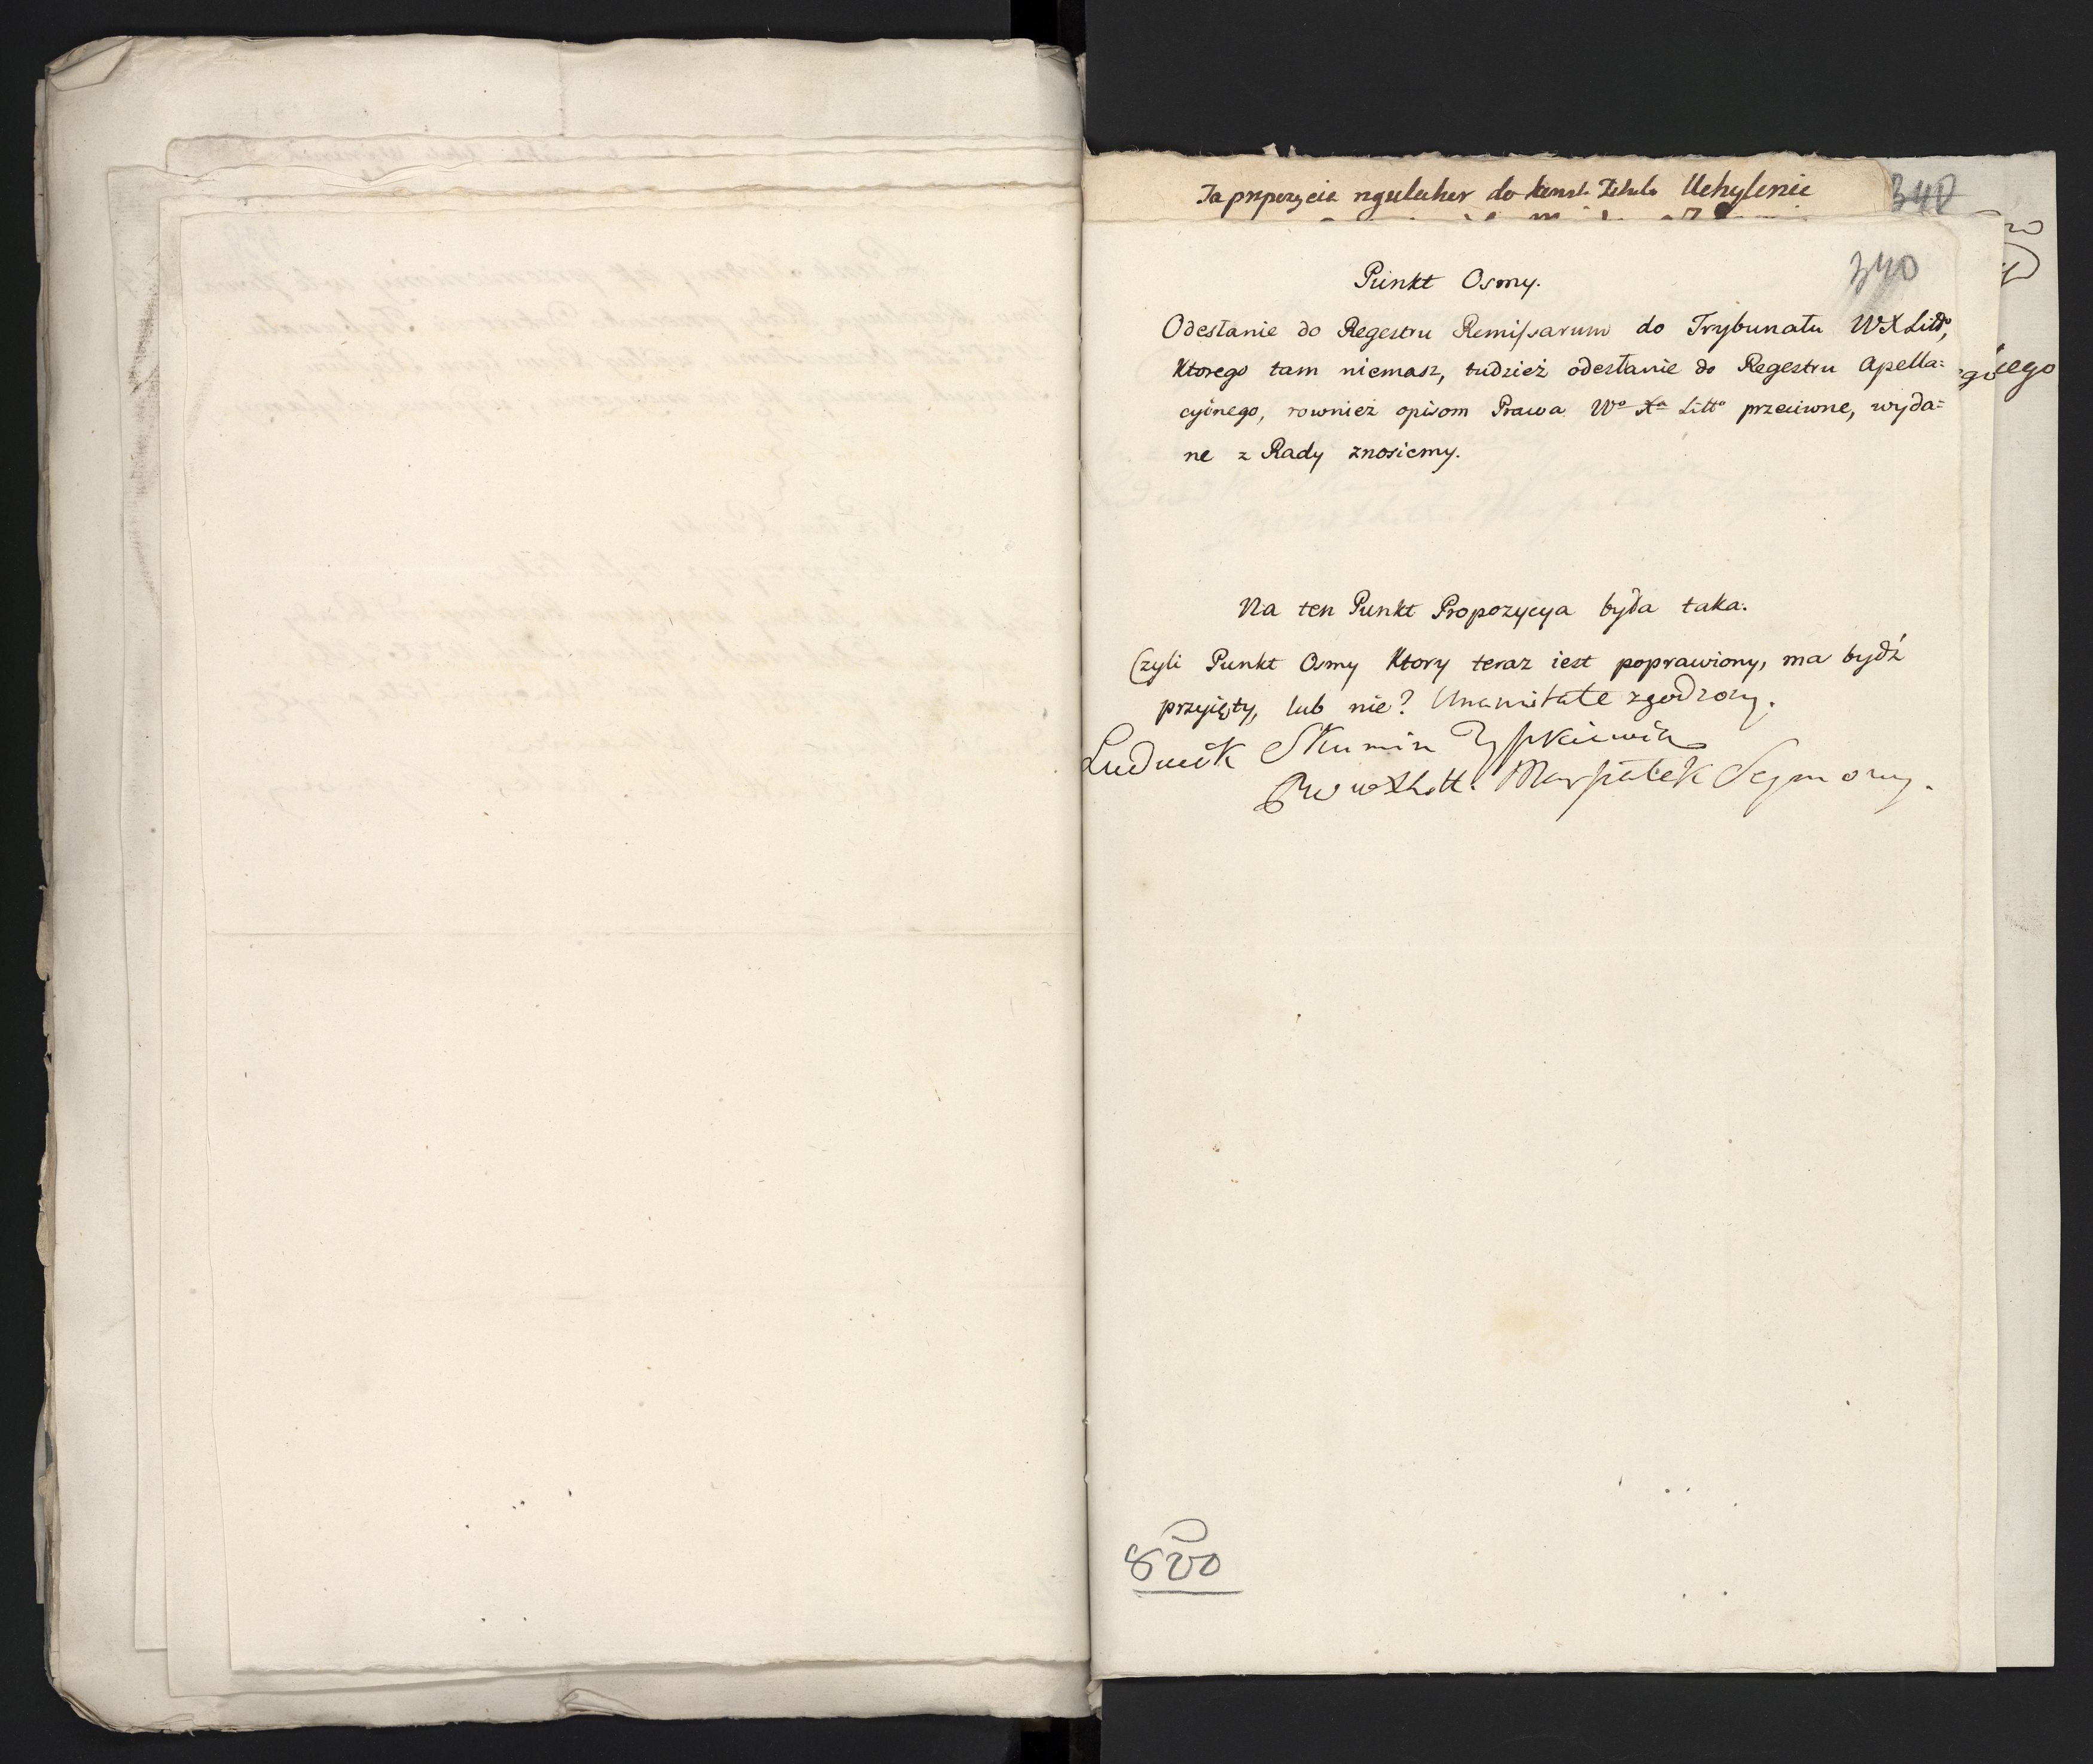 Ta propozycia reguluher do konst. Tytulo Uchylenie
340
340
Punkt Osmy.
Odesłanie do Regestru Remissarum do Trybunału WXLitto,
Ktorego tam niemasz, tudzież odesłanie do Regestru Apella=
cyinego, rownież opisom Prawa Wo Xa Litto przeciwne, wyda=
ne z Rady znosiemy.
Na ten Punkt Propozycya była taka.
Czyli Punkt Osmy Ktory teraz iest poprawiony, ma bydź
przyięty, lub nie? Unanimitate zgodzony.
Ludwik Skumin Tyszkiewicz
PW WXLitt. Marszałek Seymowy.
800